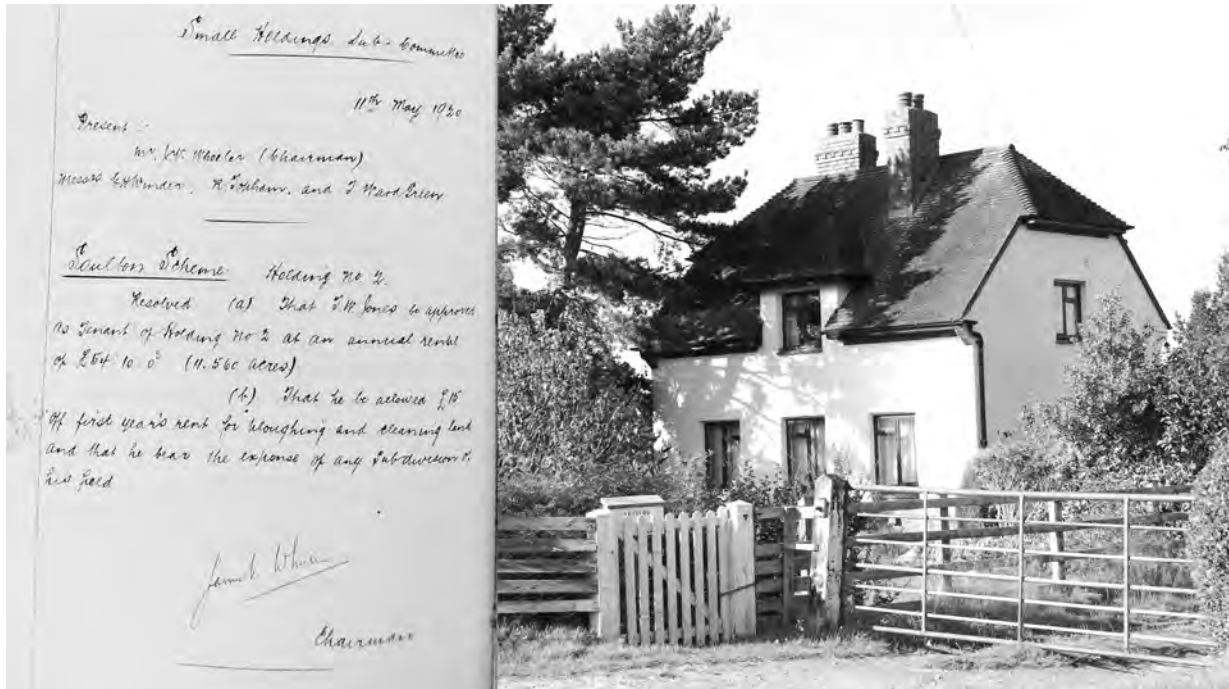 Small Holdings Sub-Committee
11th May 1920
Present :-
Mr. Wheeler (Chairman)
Messrs and T Ward Green
Scheme. Holding No 2.
Resolved (a) That T.W. Jones be approved
as Tenant of Holding No 2 at an annual rental
of £54 10 0 (11.560 acres)
(b) That he be allowed £15
off first year's rent for ploughing and cleaning land
and that he bear the expense of any Subdivision of
his field
Chairman